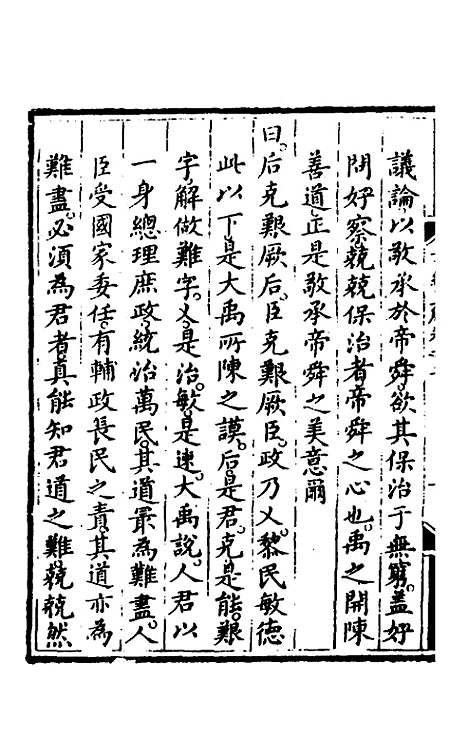 議論以敬承於帝舜。欲其保治于無窮。蓋好
問好察兢兢保治者帝舜之心也。禹之開陳
善道正是敬承帝舜之美意爾
曰。后克艱厥后。臣克艱厥臣。政乃乂。黎民敏德
此以下是大禹所陳之謨。后是君。克是能。艱
字解做難字。乂是治。敏是速。大禹說。人君以
一身總理庶政。統治萬民。其道最為難盡。人
臣受國家委任。有輔政長民之責。其道亦為
難盡。必須為君者。真能知君道之難。兢兢然